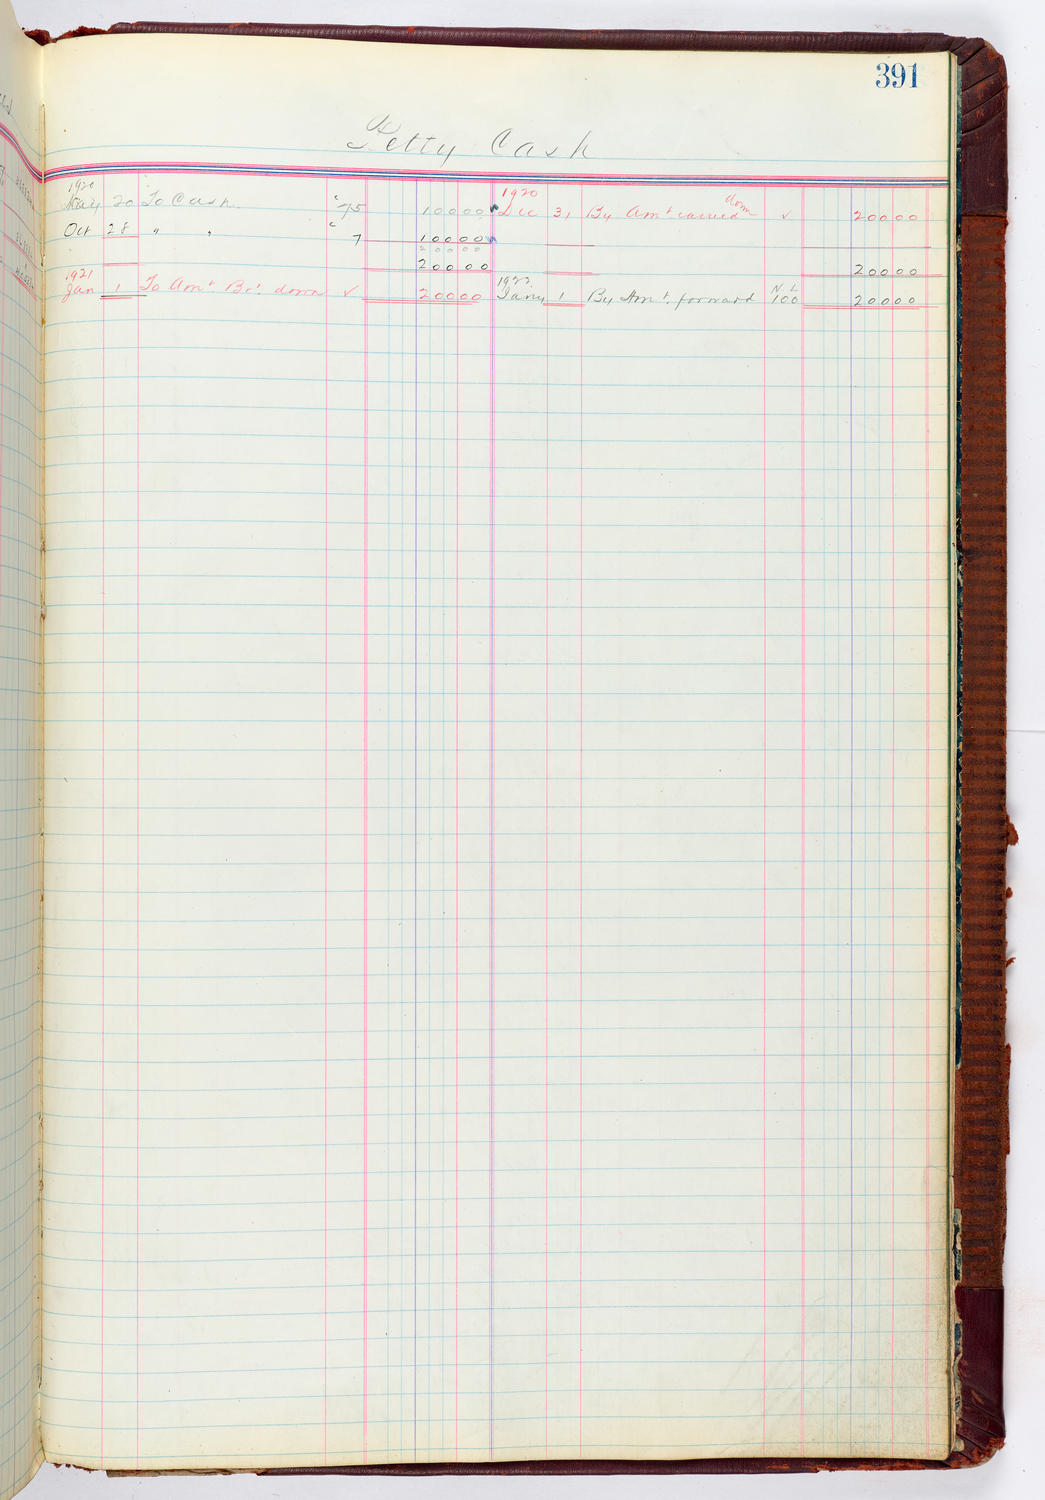 391
Petty Cash
1920 1920
May 20 To Cash " 75 10000 Dec 31 By Amt carried down ✓ 20000
Oct 28 " " " 7 10000
20000
20000 20000
1921 1922 N. L
Jan 1 To Amt Brt down ✓ 20000 Jany 1 By Amt. forward 100 20000